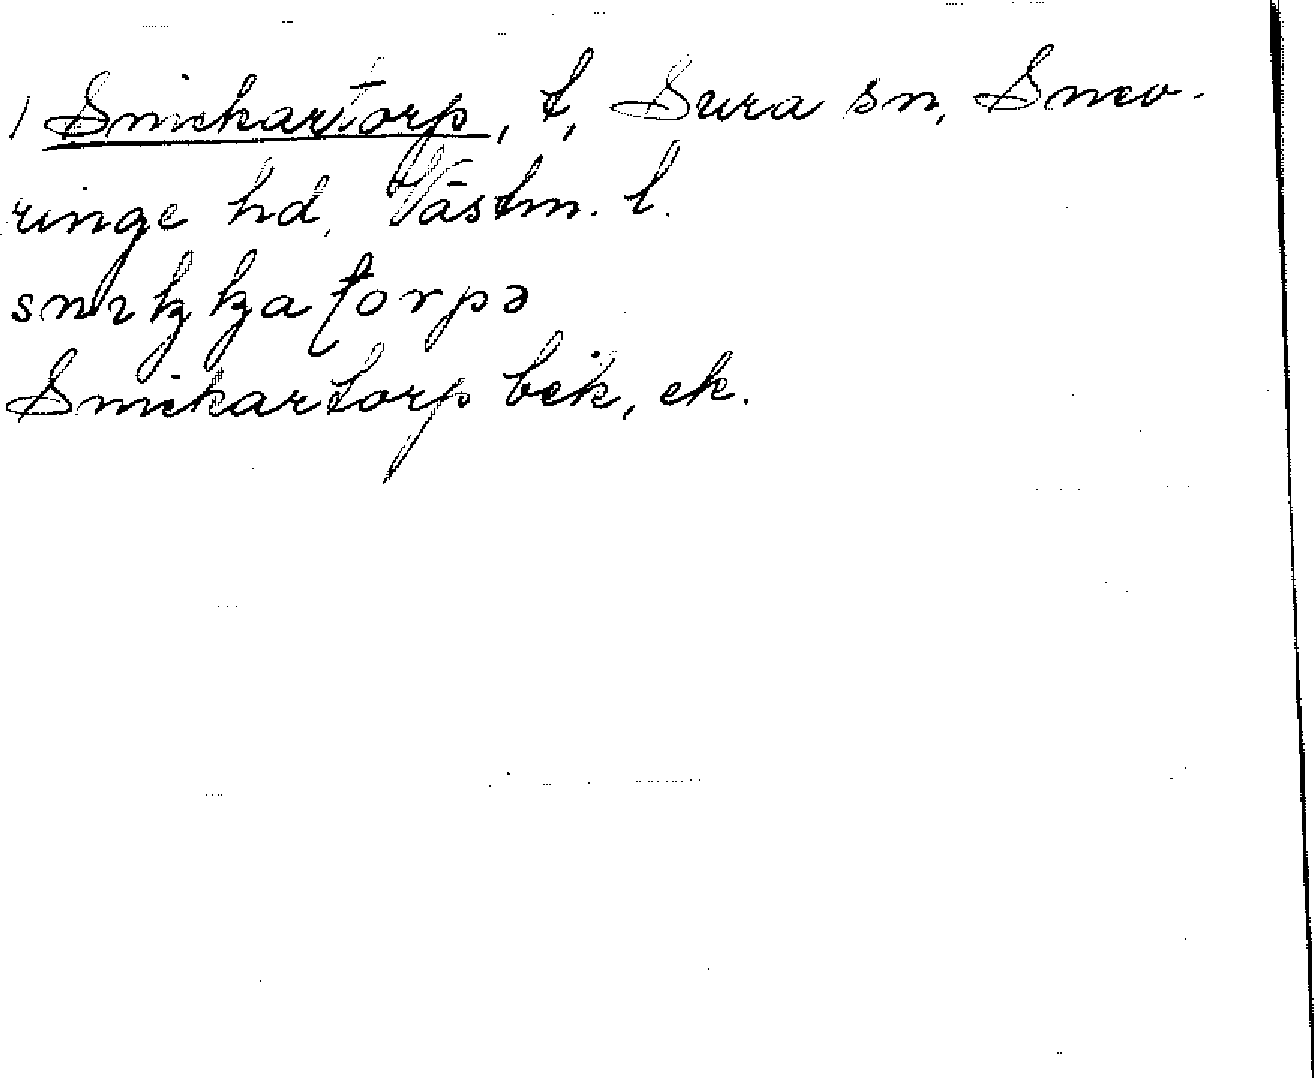 1 Snickartorp, t, Sura sn, Snev-
ringe hd, Västm. l.
Snickartorp bek, ek.